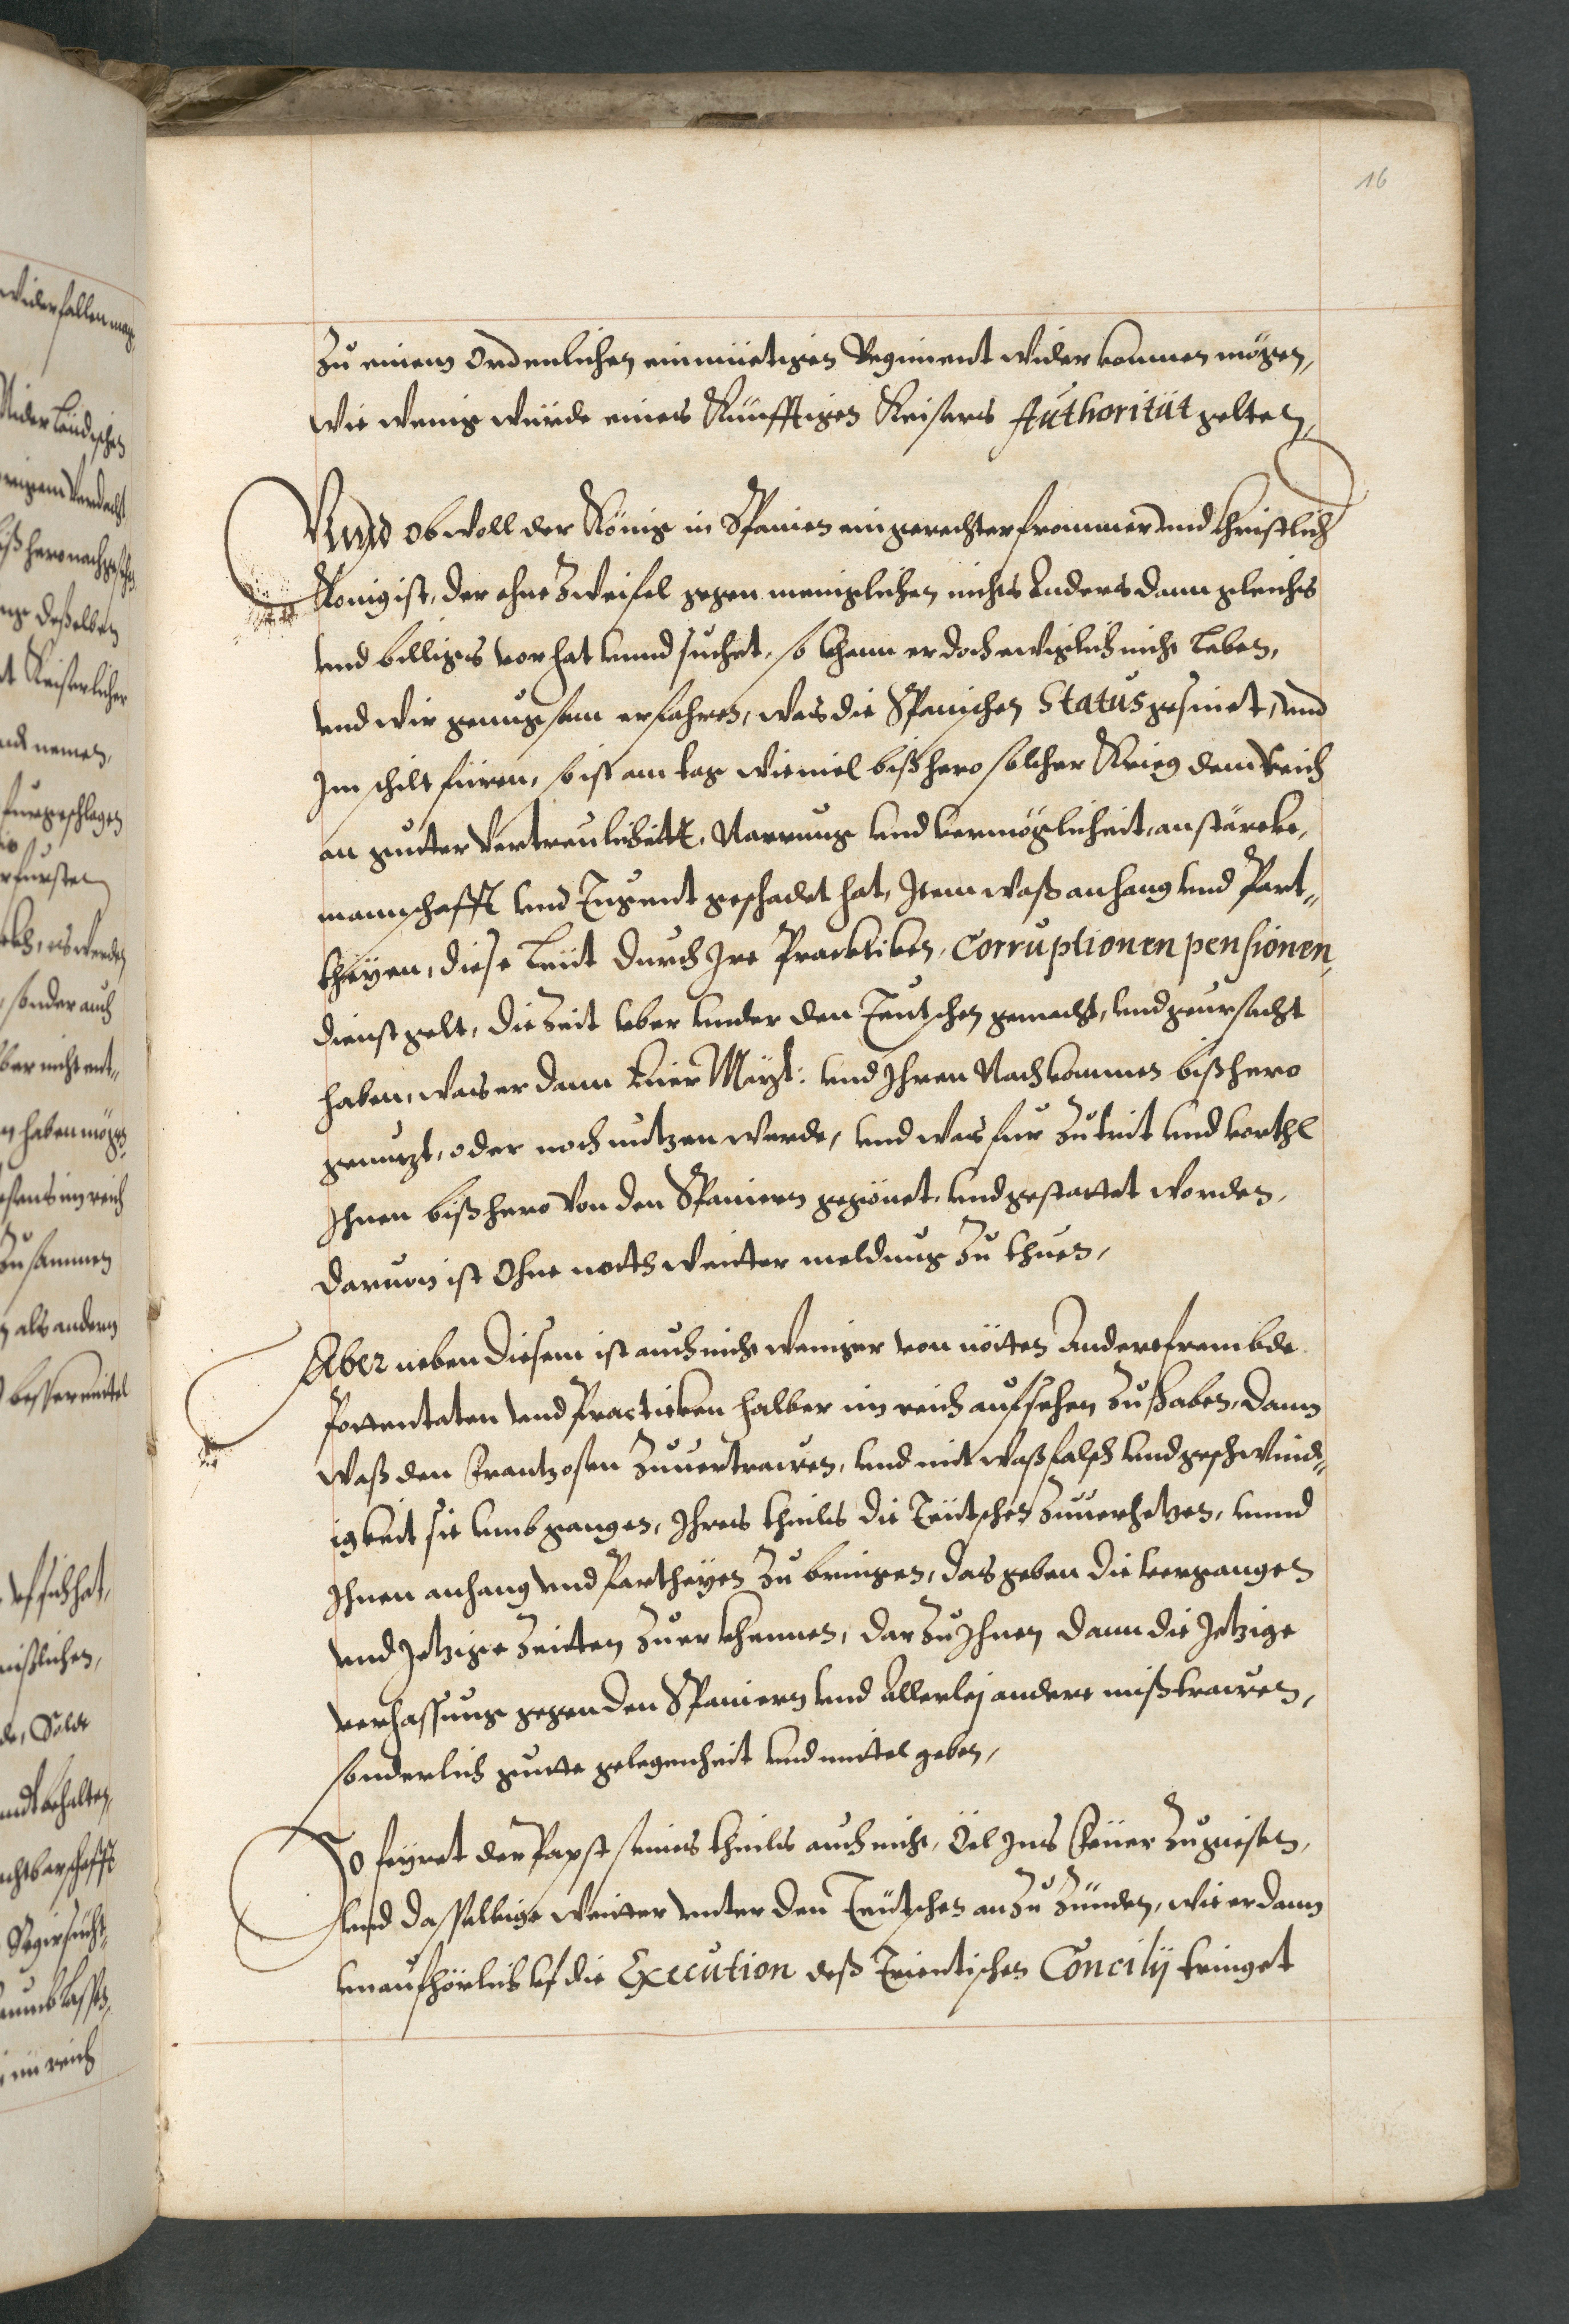 16
Zu einem Ordenlichen einmüetigen Regiment wider kommen mögen,
wie wenig würde eines Künfftigen Keisers Authoritüt gelten,
Vnnd ob woll der König in Spanien ein gerechter frommer vnd Christlich
König ist, der ohne Zweifel gegen meniglichen nichts Anders dann gleichs
vnd billigs vor hat vnnd suchet, so khann er doch ewiglich nicht Leben,
vnd wir genugsam erfahren, was die Spanischen Status gesinet, vnd
Im schilt füren, so ist am tag wieuiel bißhero solcher Krieg dem Reich
an gutter Vertreulicheitt, Narrung vnd vermöglicheit, an stärcke,
mannschafft vnd Jugent geschadet hat, Item waß anhang vnd Part„
theyen, diese Leüt durch Ire Practiken, Corruptionen pensionen,
dienstgelt, die Zeit vber vnder den Teutschen gemacht, vnd geursacht
haben, was er dann Euer Mayt: vnd Ihren Nachkommen bißhero
genutzt, oder noch nutzen werde, vnd was für Zutrit vnd vorthl
Ihnen bißhero von den Spaniern gegönet, vnd gestattet worden,
daruon ist Ohne noth weitter meldung Zu thuen,
Aber neben diesem ist auch nicht weniger von nötten Andere frembde
Pottentaten vnd Practicken halber im reich aufsehen Zu haben, dann
waß den Frantzosen Zuuertrawen, vnd mit waß falsch vnd geschwind„
igkeit sie vmbgangen, Ihres theils die Teütschen Zuuerhetzen, vnnd
Ihnen anhang vnd Partheyen Zu bringen, das geben die vergangen
vnd Jetzige Zeitten Zuerkhennen, dar Zu Ihnen dann die Jetzige
verhassung gegen den Spaniern vnd Allerlej andere mißtrawen,
sonderlich gutte gelegenheit vnd mittel geben,
So feyret der Papst seines theils auch nicht, Öel Ins Feüer Zugiesen,
vnd dasselbige weitter vnter den Teütschen an Zu Zünden, wie er dann
vnaufhörlich vf die Execution deß Trientischen Concilij tringet